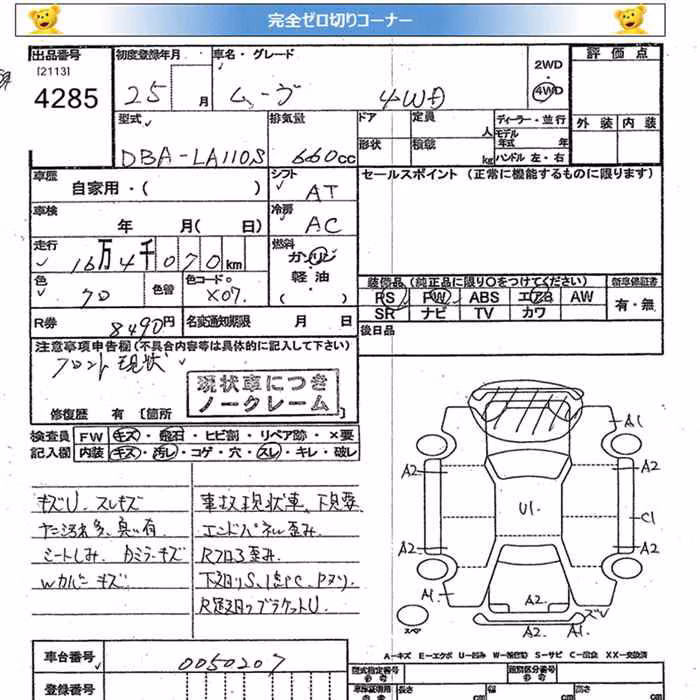 完全ゼロ切りコーナー
出品番号 初度登録年月 車名・グレード 2WD 評価点
[2113]
4285 25 月 ムーヴ 4WD ・4WD
型式 排気量 ドア 定員 人 ディーラー・並行 外装 内装
DBA-LA110S 660cc 形状 積載 kg モデル年式 年
ハンドル 左・右
車歴 シフト セールスポイント (正常に機能するものに限ります)
自家用・( ) AT
車検 冷房
年 月( 日) AC
走行 燃料
16万4千070km ガソリン
色 色替 色コード 軽油
70 X07 ( ・ )
装備品(純正品に限り○をつけてください) 新車保証書
PS PW ABS エアB AW 有・無
SR ナビ TV カワ
R券 8490円 名変通知期限 月 日
後日品
注意事項申告欄(不具合内容等は具体的に記入して下さい)
フロント現状
現状車につき
ノークレーム
修復歴 有 [箇所
検査員 FW キズ・飛石・ヒビ割・リペア跡・×要
記入欄 内装 キズ・汚れ・コゲ・穴・スレ・キレ・破レ
キズU.スレキズ 事故現状車、下見要
エンドパネル歪み.
シートしみ. Rフロア歪み.
Wカバーキズ
A1
A2 A2
U1
C1
A2 A2
A1
A2
A2 A1
スペア
A-キズ E-エクボ U-凹み S-サビ C-腐食 XX-交換済
車台番号 0050207
登録番号
型式指定番号 類別区分番号
参考 参考
長さ cm 幅 cm 高さ cm